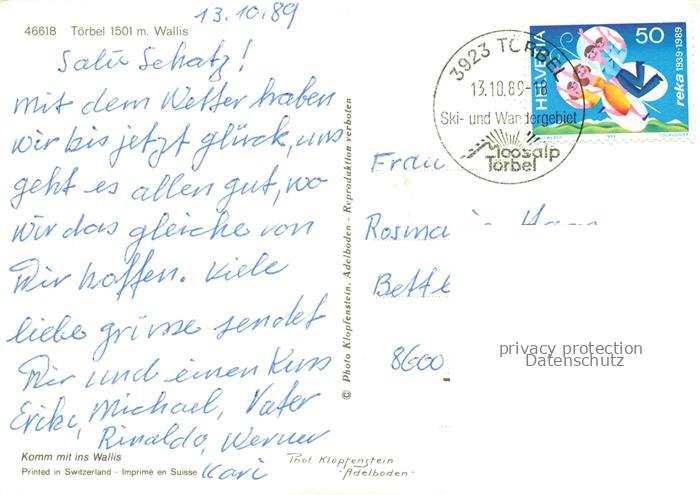 13.10.89
46618 Törbel 1501 m. Wallis
Salü Schatz!
mit dem Wetter haben
wir bis jetzt glück, uns
geht es allen gut, wo
wir das gleiche von
Dir hoffen. Viele
liebe grüsse sendet
Dir und einen Kuss
Erika, Michael, Vater
Rinaldo, Werner
Kari
Komm mit ins Wallis
Printed in Switzerland - Imprimé en Suisse
Phot. Klopfenstein
-Adelboden-
© Photo Klopfenstein, Adelboden - Reproduktion verboten
3923 TÖRBEL
13.10.89-18
Ski- und Wandergebiet
Moosalp
Törbel
HELVETIA
50
reka 1939-1989
Frau
8600
privacy protection
Datenschutz